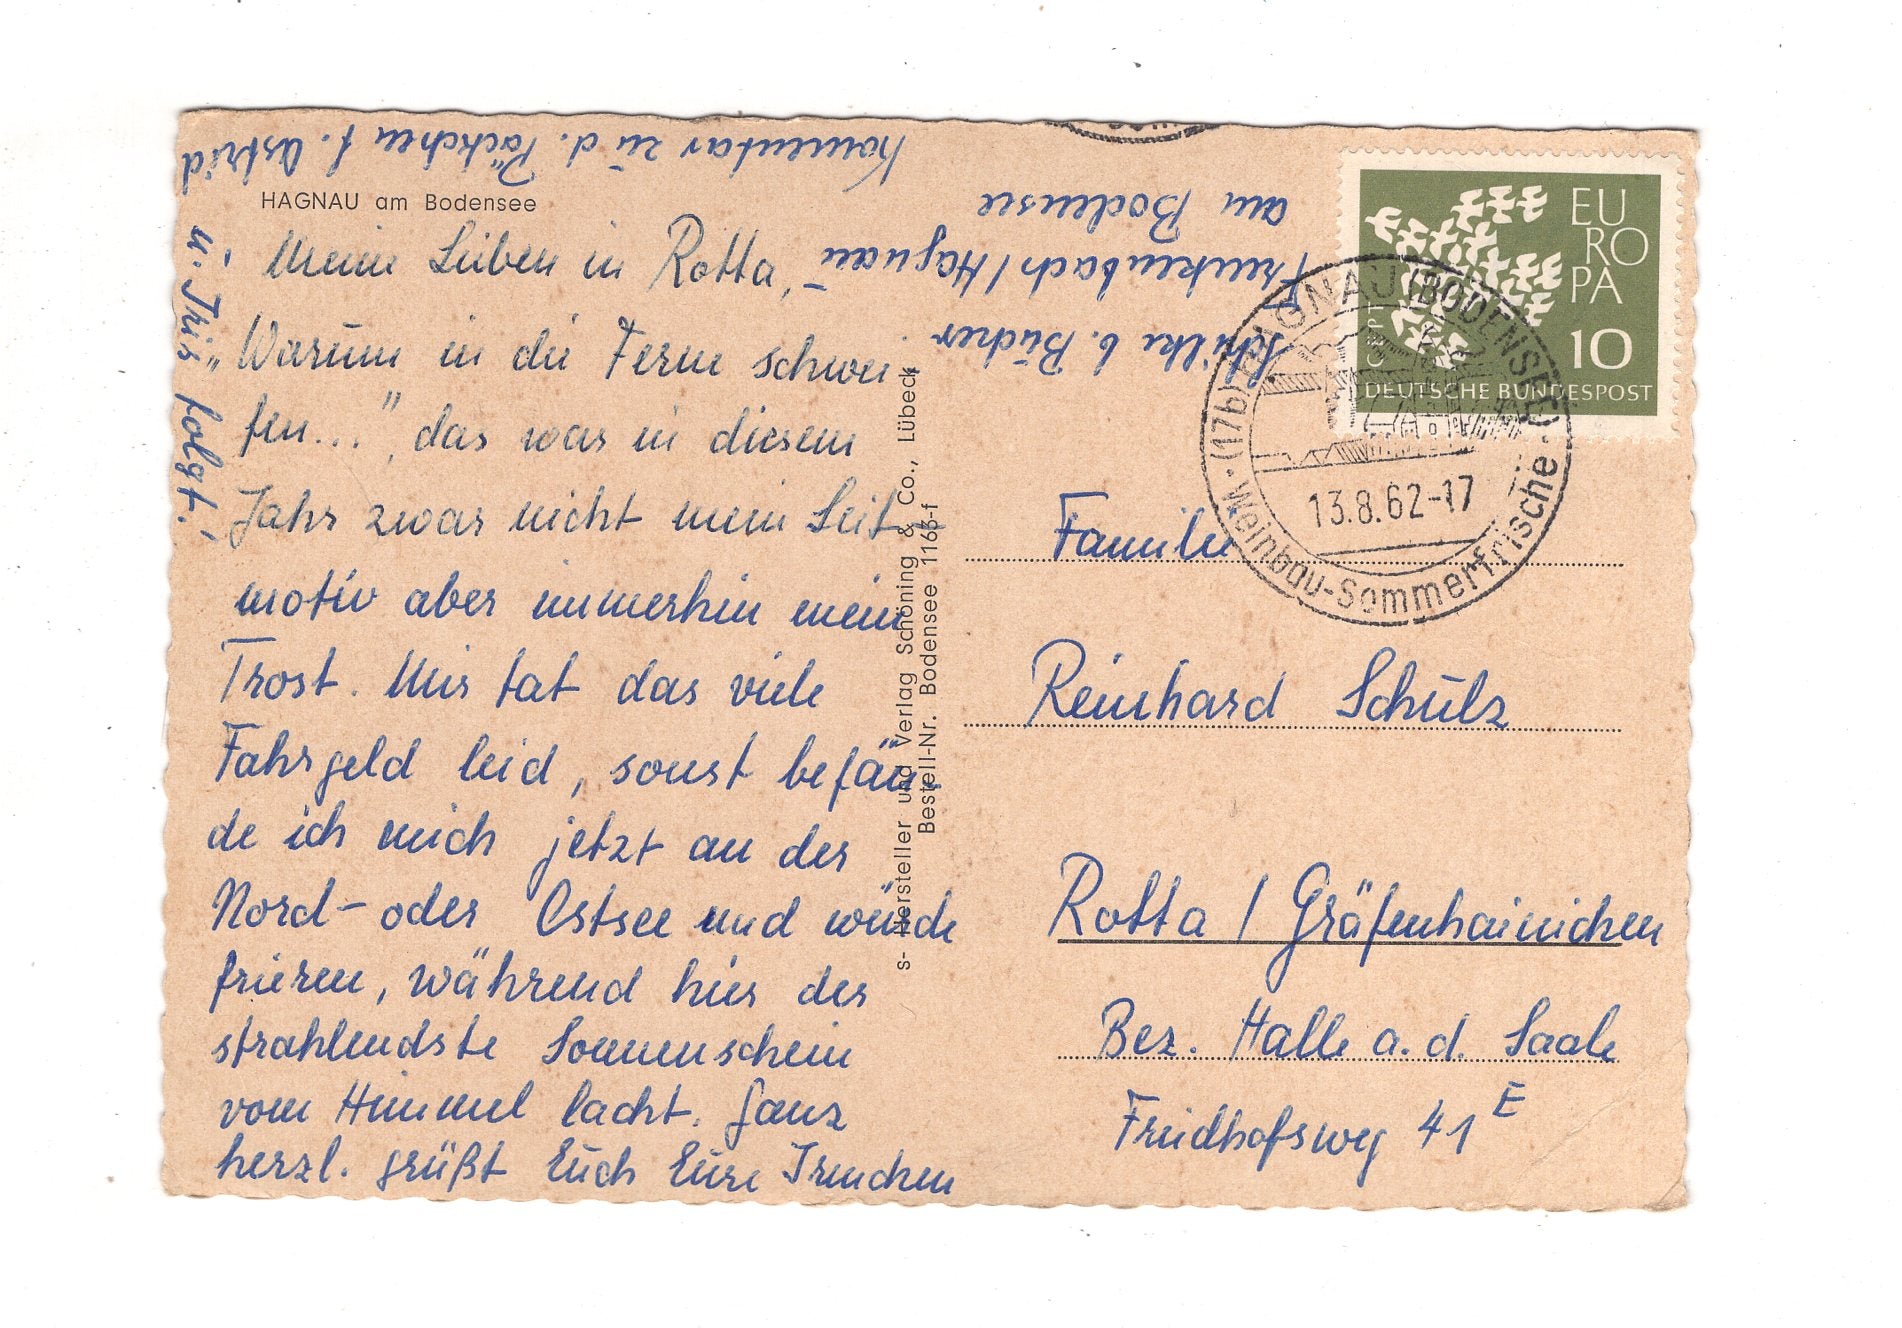 HAGNAU am Bodensee
Meine Lieben in Rotta,
„Warum in die Ferne schwei-
fen...", das war in diesem
Jahr zwar nicht mein Leit-
motiv aber immerhin mein
Trost. Mir tat das viele
Fahrgeld leid, sonst befän-
de ich mich jetzt an der
Nord- oder Ostsee und würde
frieren, während hier der
strahlendste Sonnenschein
vom Himmel lacht. Ganz
herzl. grüßt Euch Eure Irmchen
Komentar zu d. Päckchen f. Astrid
u. Iris folgt!
s- Hersteller und Verlag Schöning & Co., Lübeck
Bestell-Nr. Bodensee 1166-f
b. Bücher
Frenkenbach/Hagnau
am Bodensee
EU
RO
PA
CEPT
10
DEUTSCHE BUNDESPOST
(17b) HAGNAU (BODENSEE)
13.8.62-17
Weinbau-Sommerfrische
Familie
Reinhard Schulz
Rotta / Gräfenhainichen
Bez. Halle a. d. Saale
Friedhofsweg 41 E